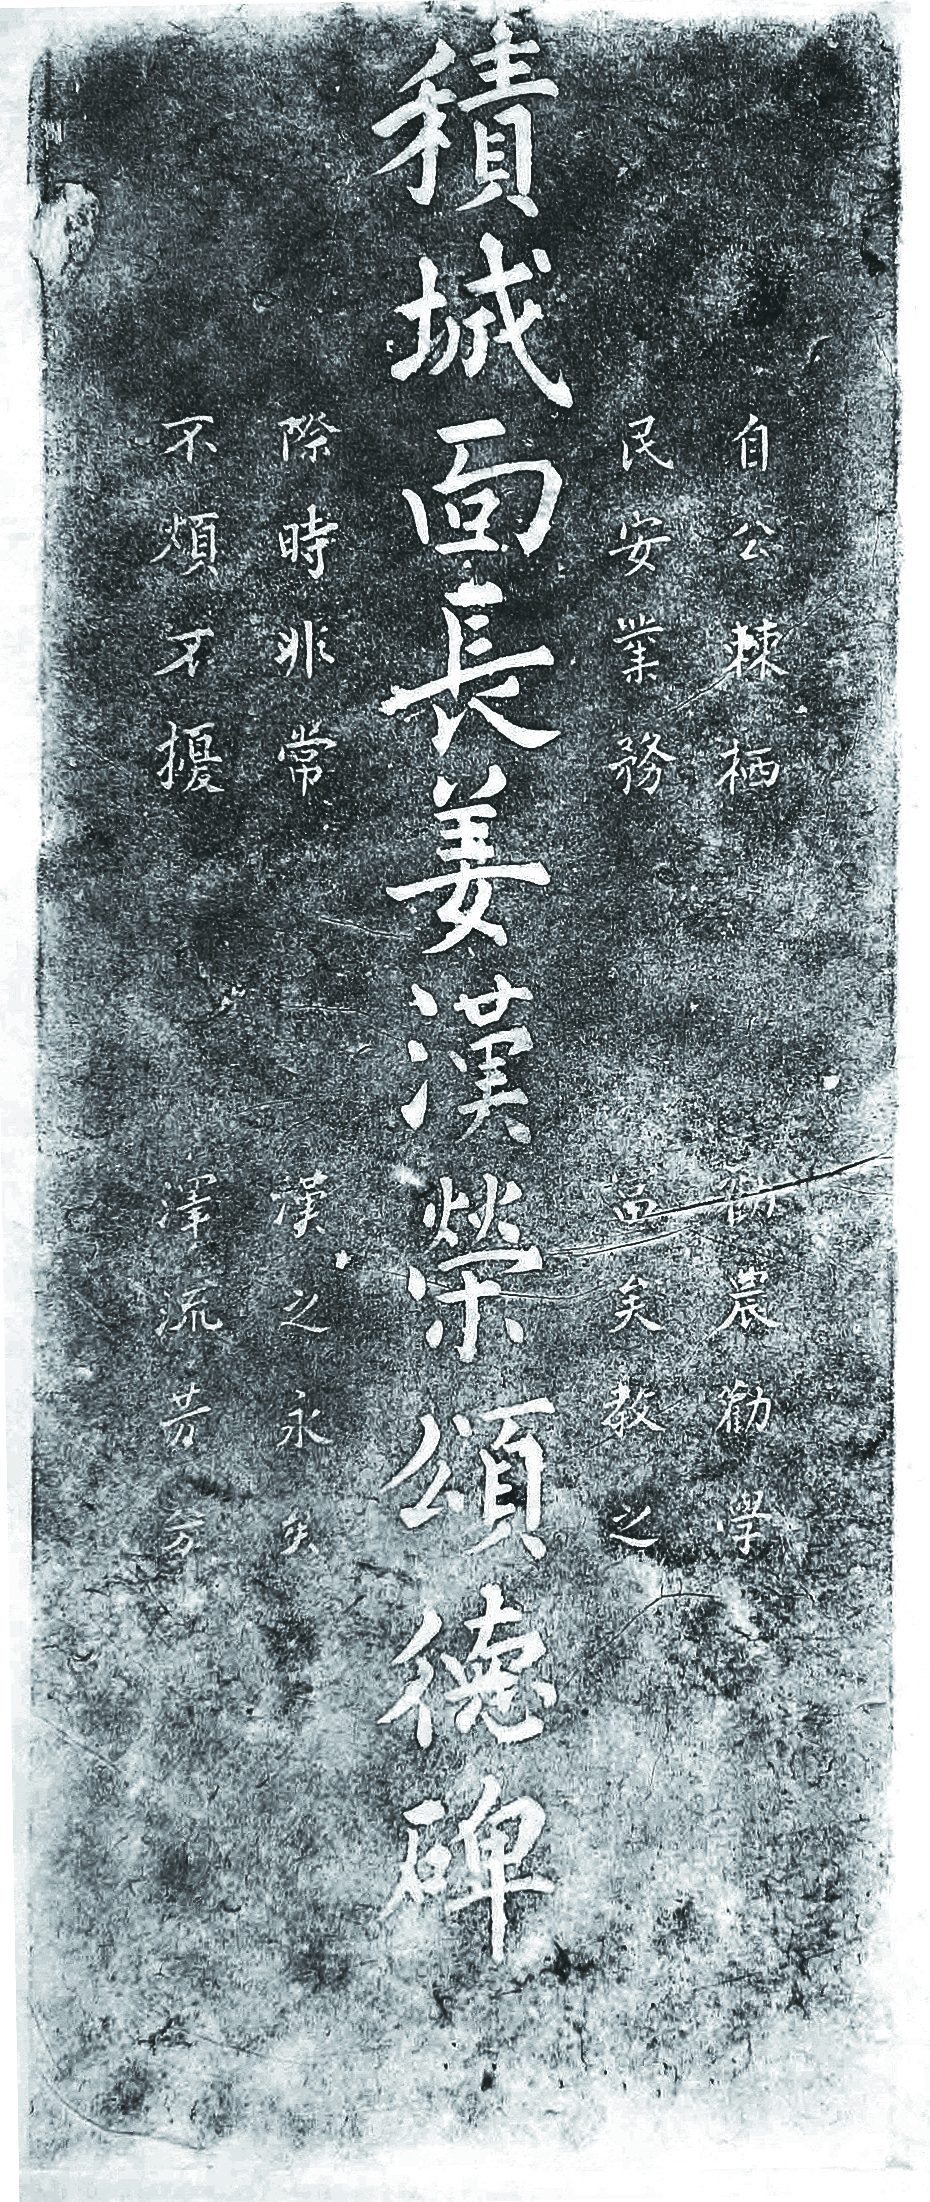 自公棘栖 勸農勸學
民安業務 富矣教之
積城面長姜漢榮頌德碑
際時非常 漢之永矣
不煩不擾 澤流